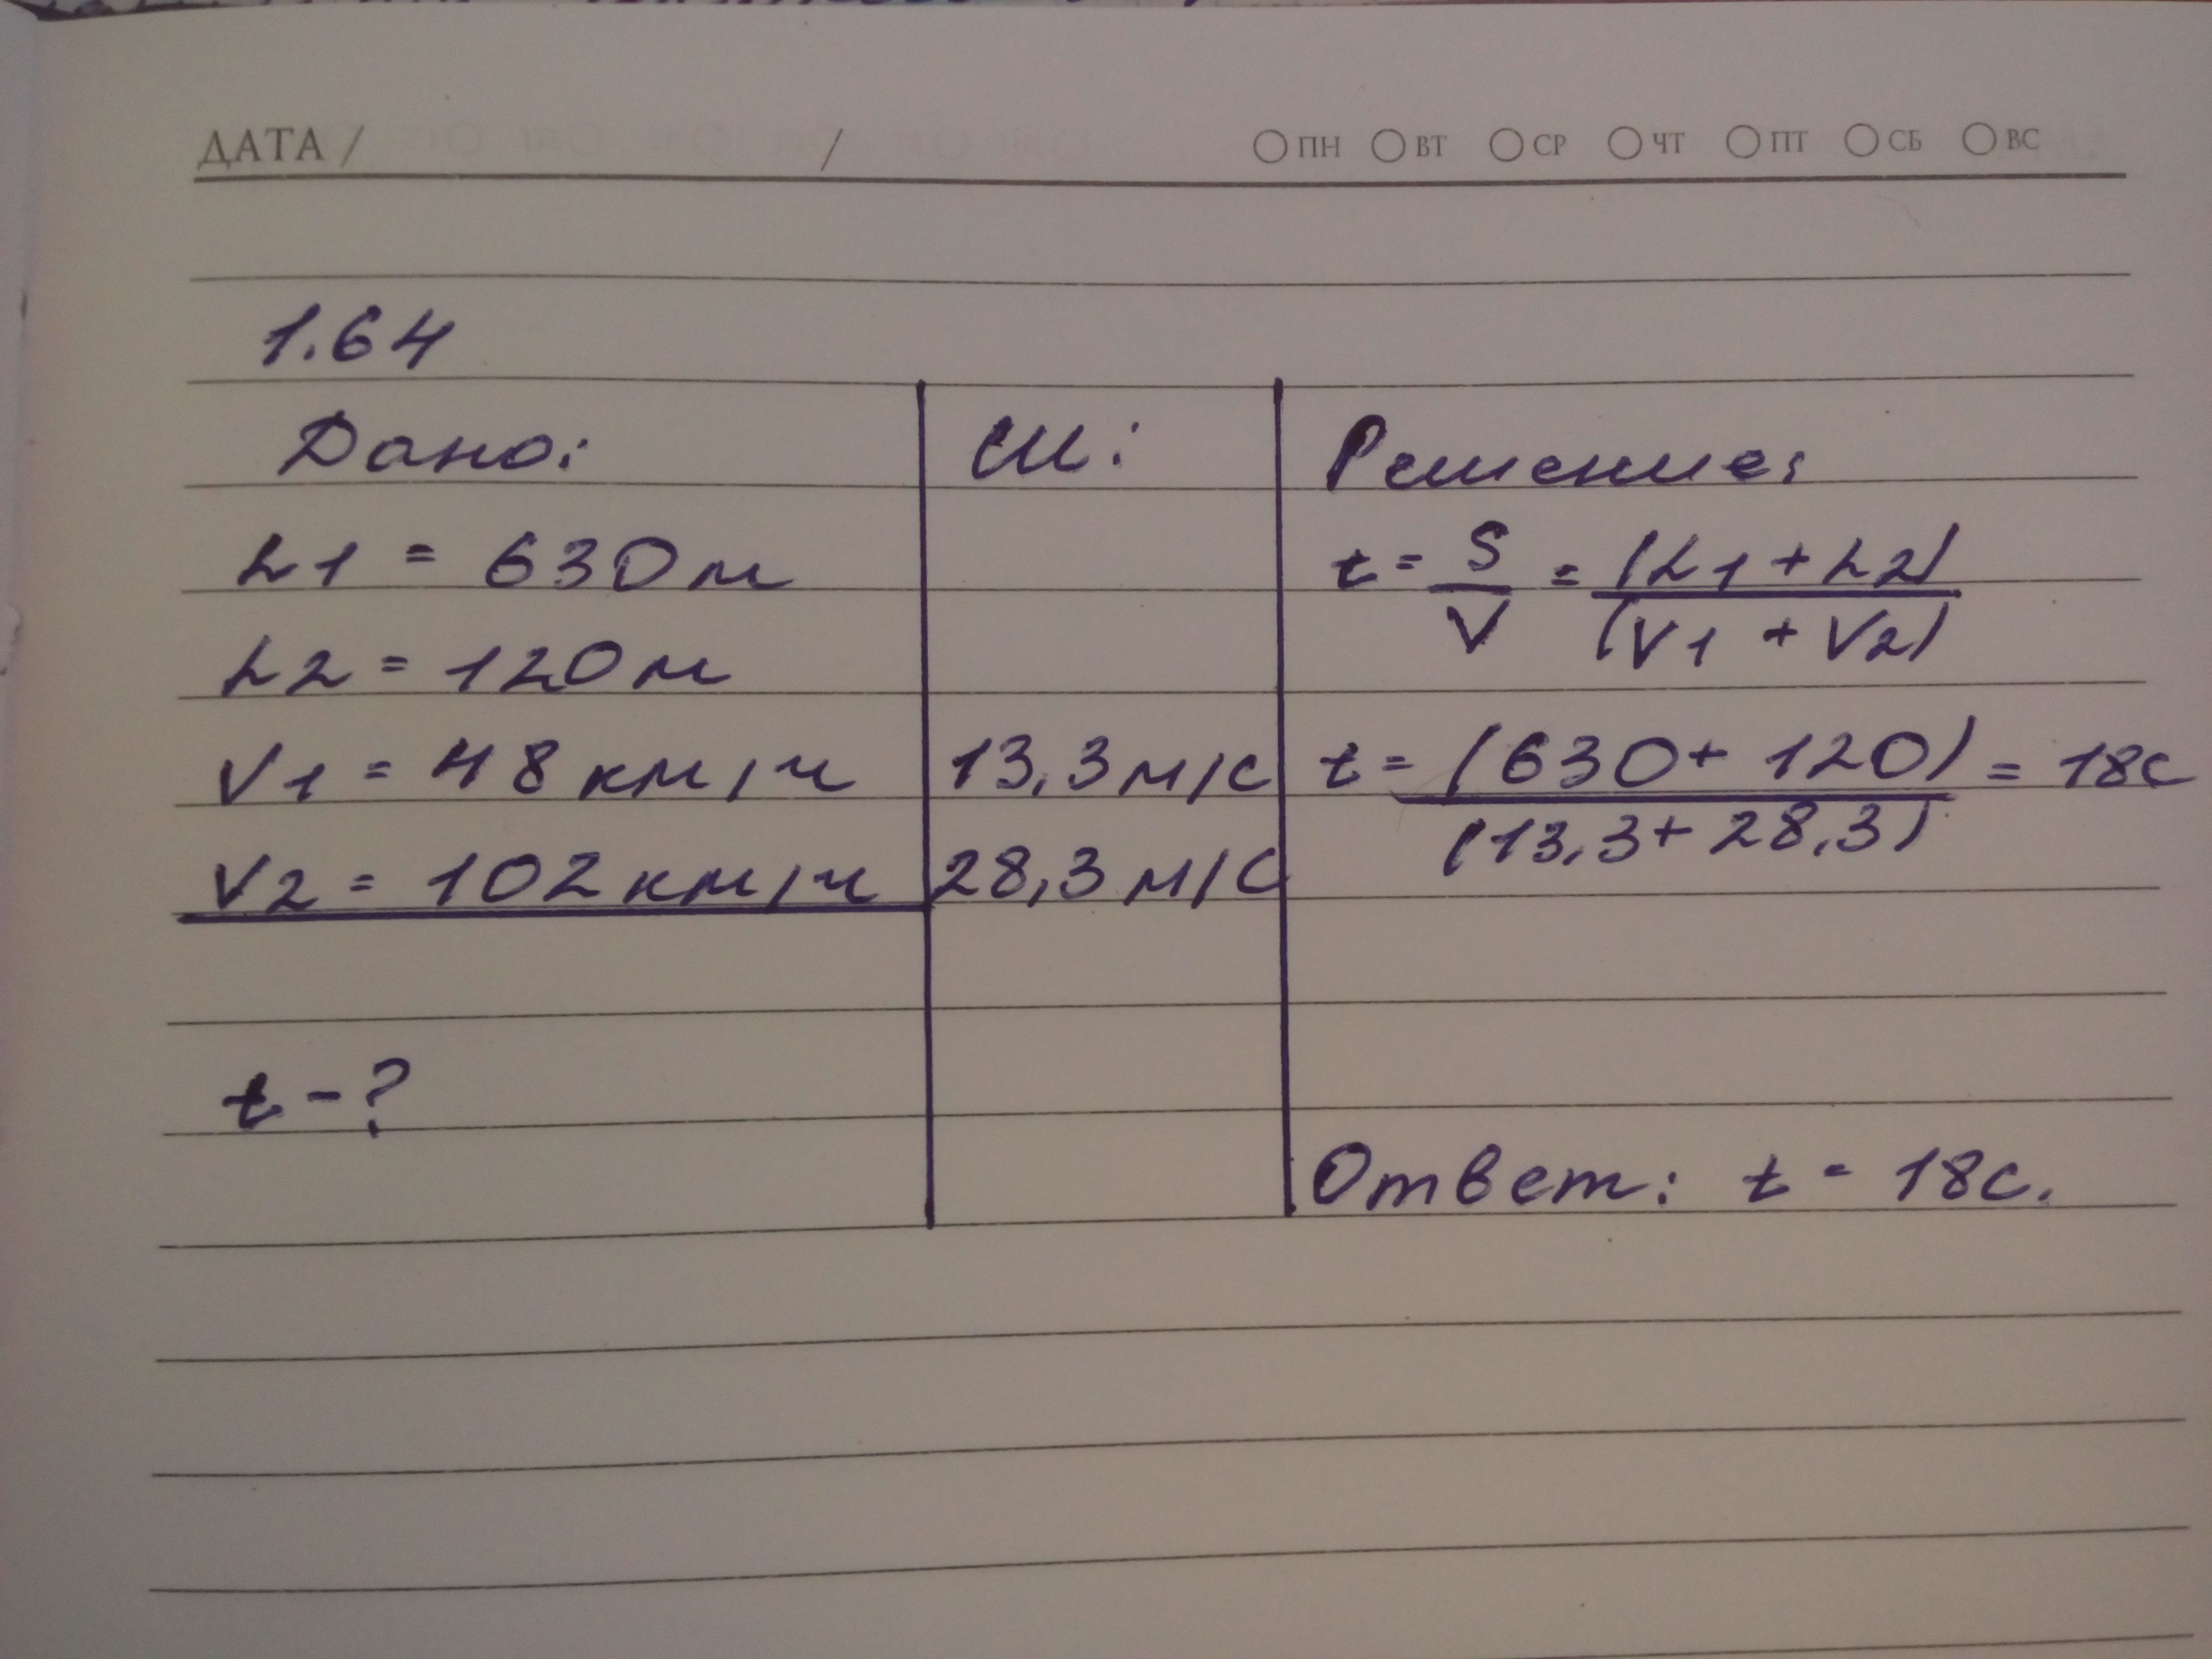 ДАТА / /
ПН ВТ СР ЧТ ПТ СБ ВС
1.64
Дано:
L1 = 630 м
L2 = 120 м
V1 = 48 км/ч
V2 = 102 км/ч
t - ?
СИ:
13,3 м/с
28,3 м/с
Решение:
t = S/V = (L1 + L2)/(V1 + V2)
t = (630 + 120)/(13,3 + 28,3) = 18с
Ответ: t = 18с.